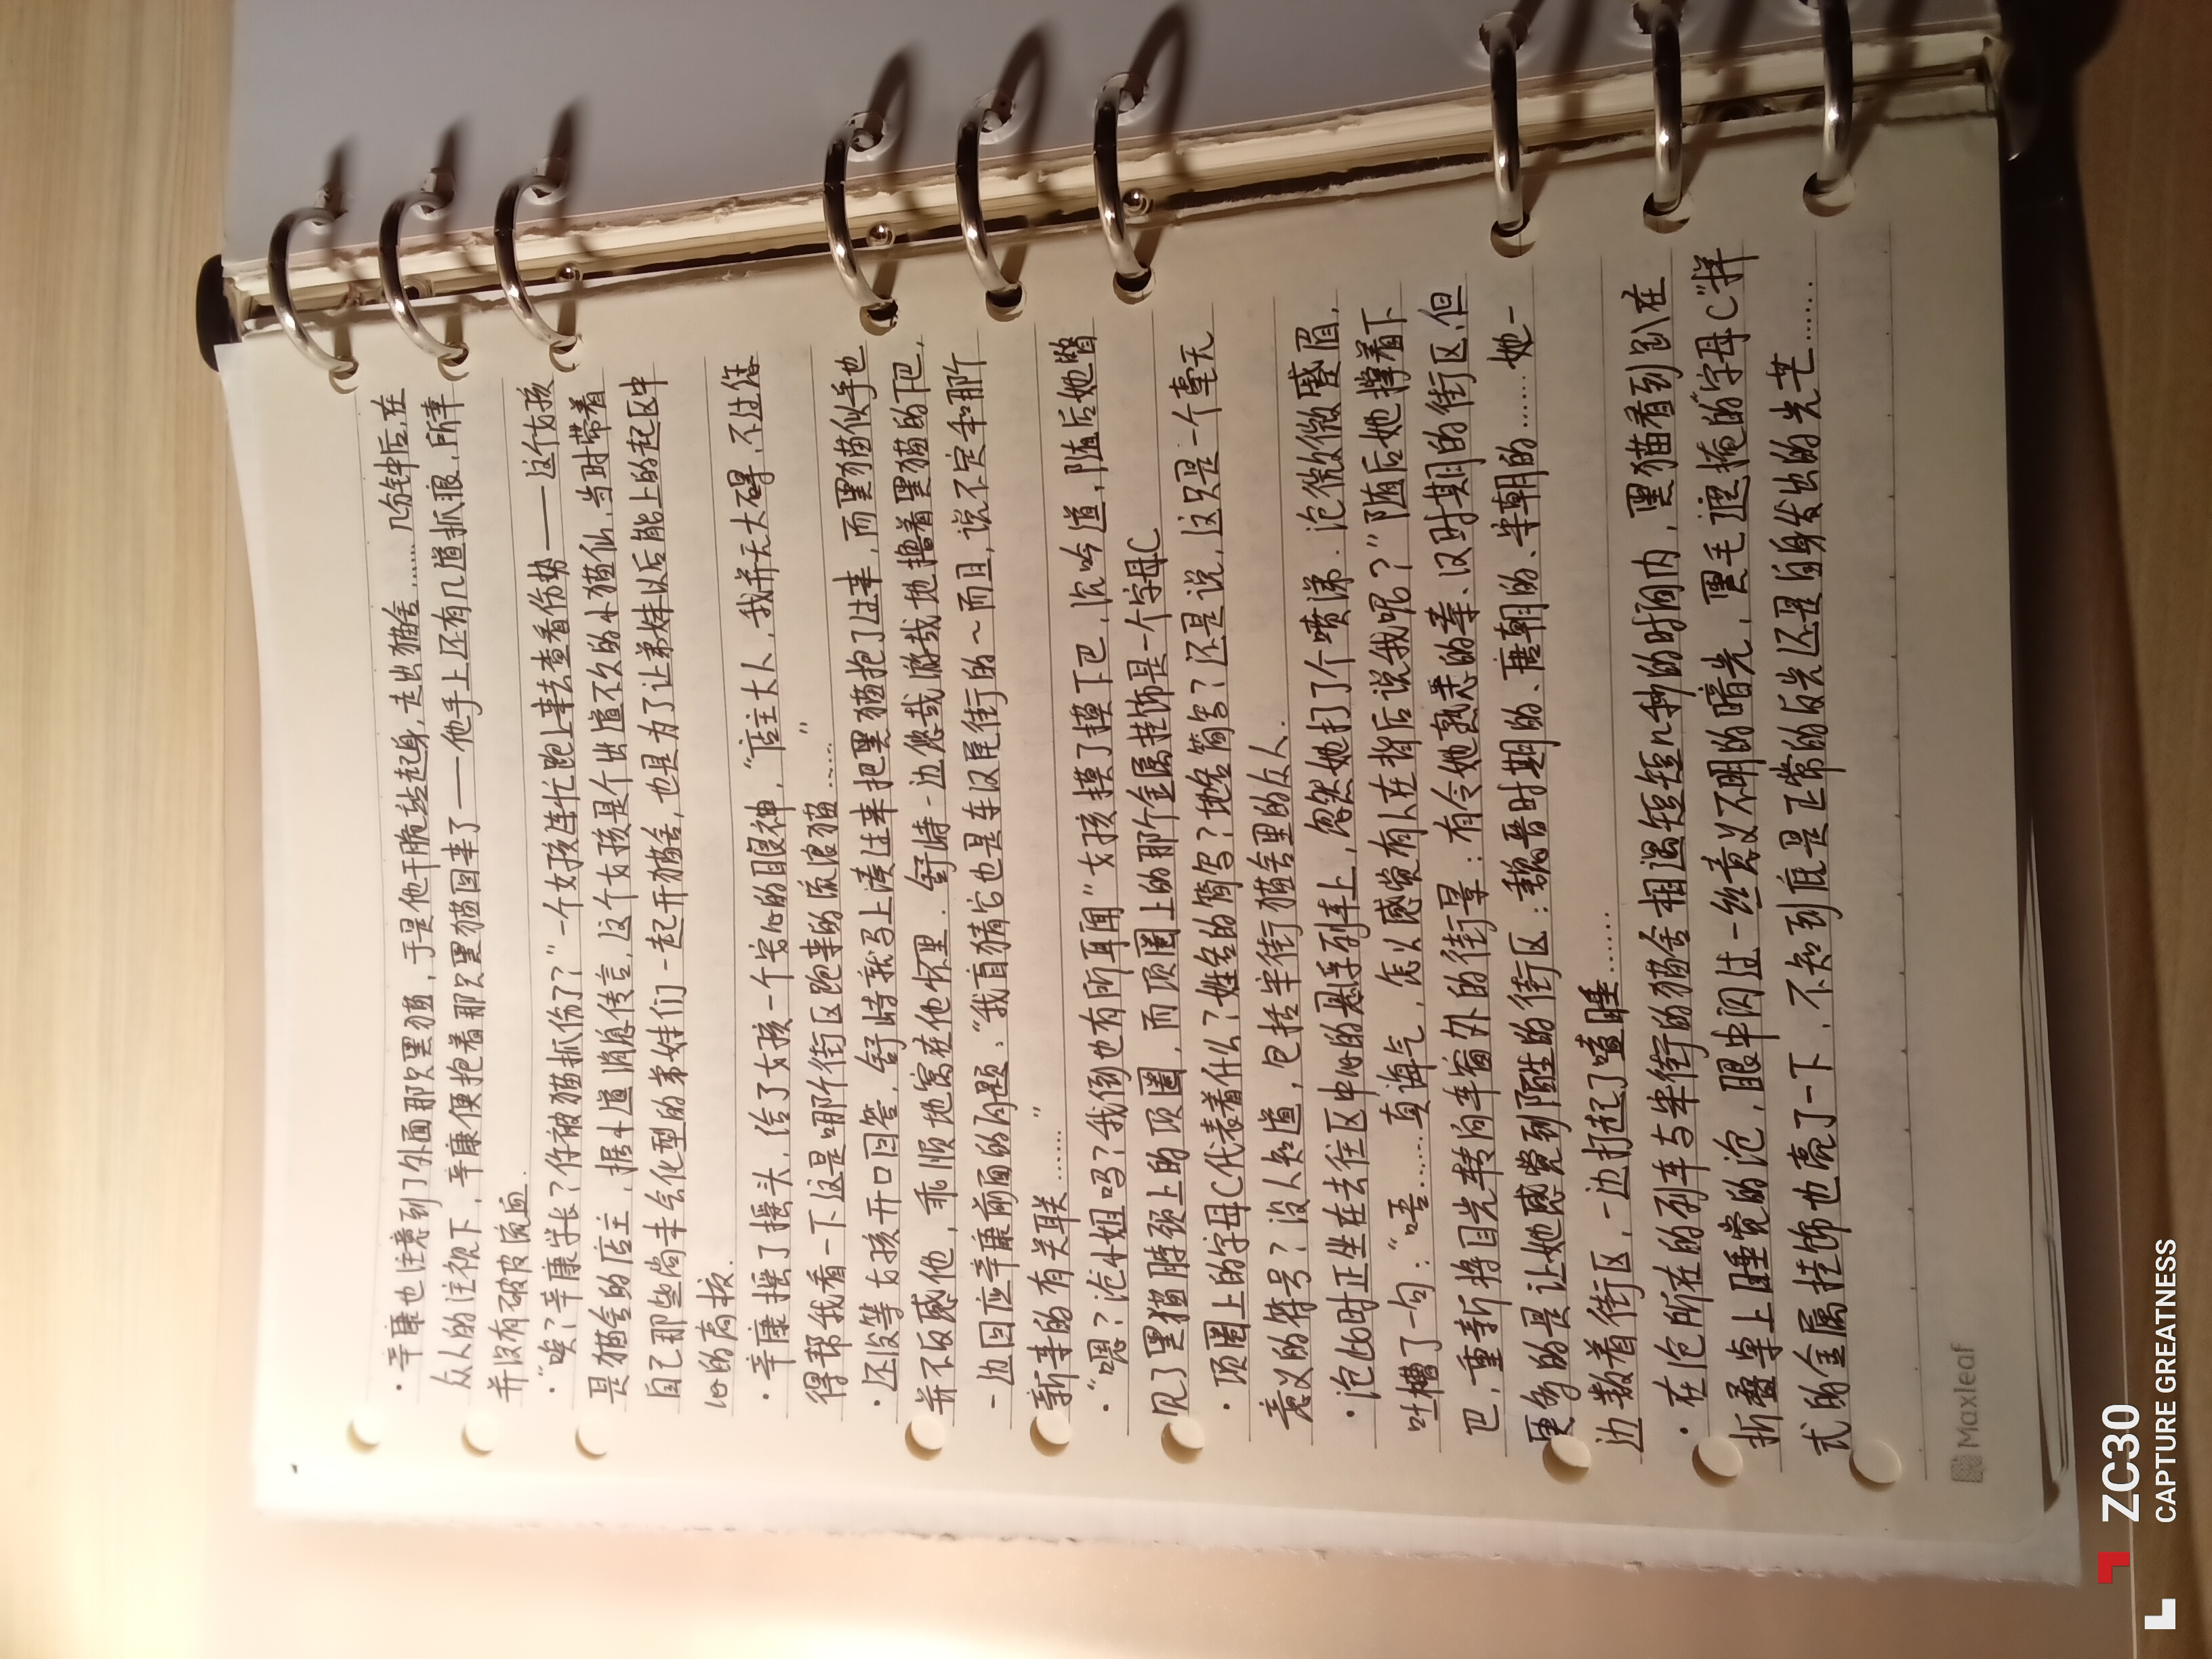 ·辛康也注意到了外面那只黑猫，于是他干脆站起身，走出猫舍……几分钟后，在
众人的注视下，辛康便抱着那只黑猫回来了——他手上还有几道抓痕，所幸
并没有破皮流血.
·“唉？辛康学长？你被猫抓伤了？”一个女孩连忙跑上来去查看伤势——这个女孩
是猫舍的店主，据小道消息传言，这个女孩是个出道不久的小猫仙，当时带着
自己那些尚未会化型的弟妹们一起开猫舍，也是为了让弟妹以后能上的起区中
心的高校.
·辛康摇了摇头，给了女孩一个安心的眼神，“店主大人，我并无大碍，不过您
得帮我看一下这是哪个街区跑来的流浪猫……”
·还没等女孩开口回答，舒恃就马上凑过来把黑猫抱了过来，而黑猫似乎也
并不反感他，乖顺地窝在他怀里．舒恃一边悠哉游哉地撸着黑猫的下巴，
一边回应辛康前面的问题：“我盲猜它也是车汉尾街的～而且，说不定和那个
新来的有关联……”
·“嗯？沧小姐吗？我倒也有所耳闻”女孩摸了摸下巴，沉吟道，随后她瞥
见了黑猫脖颈上的项圈，而项圈上的那个金属挂饰是一个字母C
·项圈上的字母C代表着什么？姓名的简写？地名简写？还是说，这只是一个毫无
意义的符号？没人知道，包括半街猫舍里的众人．
·沧此时正坐在去往区中心的悬浮列车上，忽然她打了个喷涕．沧微微蹙眉，
吐槽了一句：“唔……真诲气，怎么感觉有人在背后说我呢？”随后她撑着下
巴，重新将目光转向车窗外的街景：有令她熟悉的秦、汉时期的街区，但
更多的是让她感觉到陌生的街区：魏晋时期的、唐朝的、宋朝的……她一
边数着街区，一边打起了瞌睡……
·在沧所在的列车与半街的猫舍相遇短短n秒的时间内，黑猫看到趴在
折叠桌上睡觉的沧，眼中闪过一丝意义不明的暗光，黑毛遮掩的“字母C”样
式的金属挂饰也亮了一下，不知到底是正常的反光还是自身发出的光芒……
Maxleaf
ZC30
CAPTURE GREATNESS